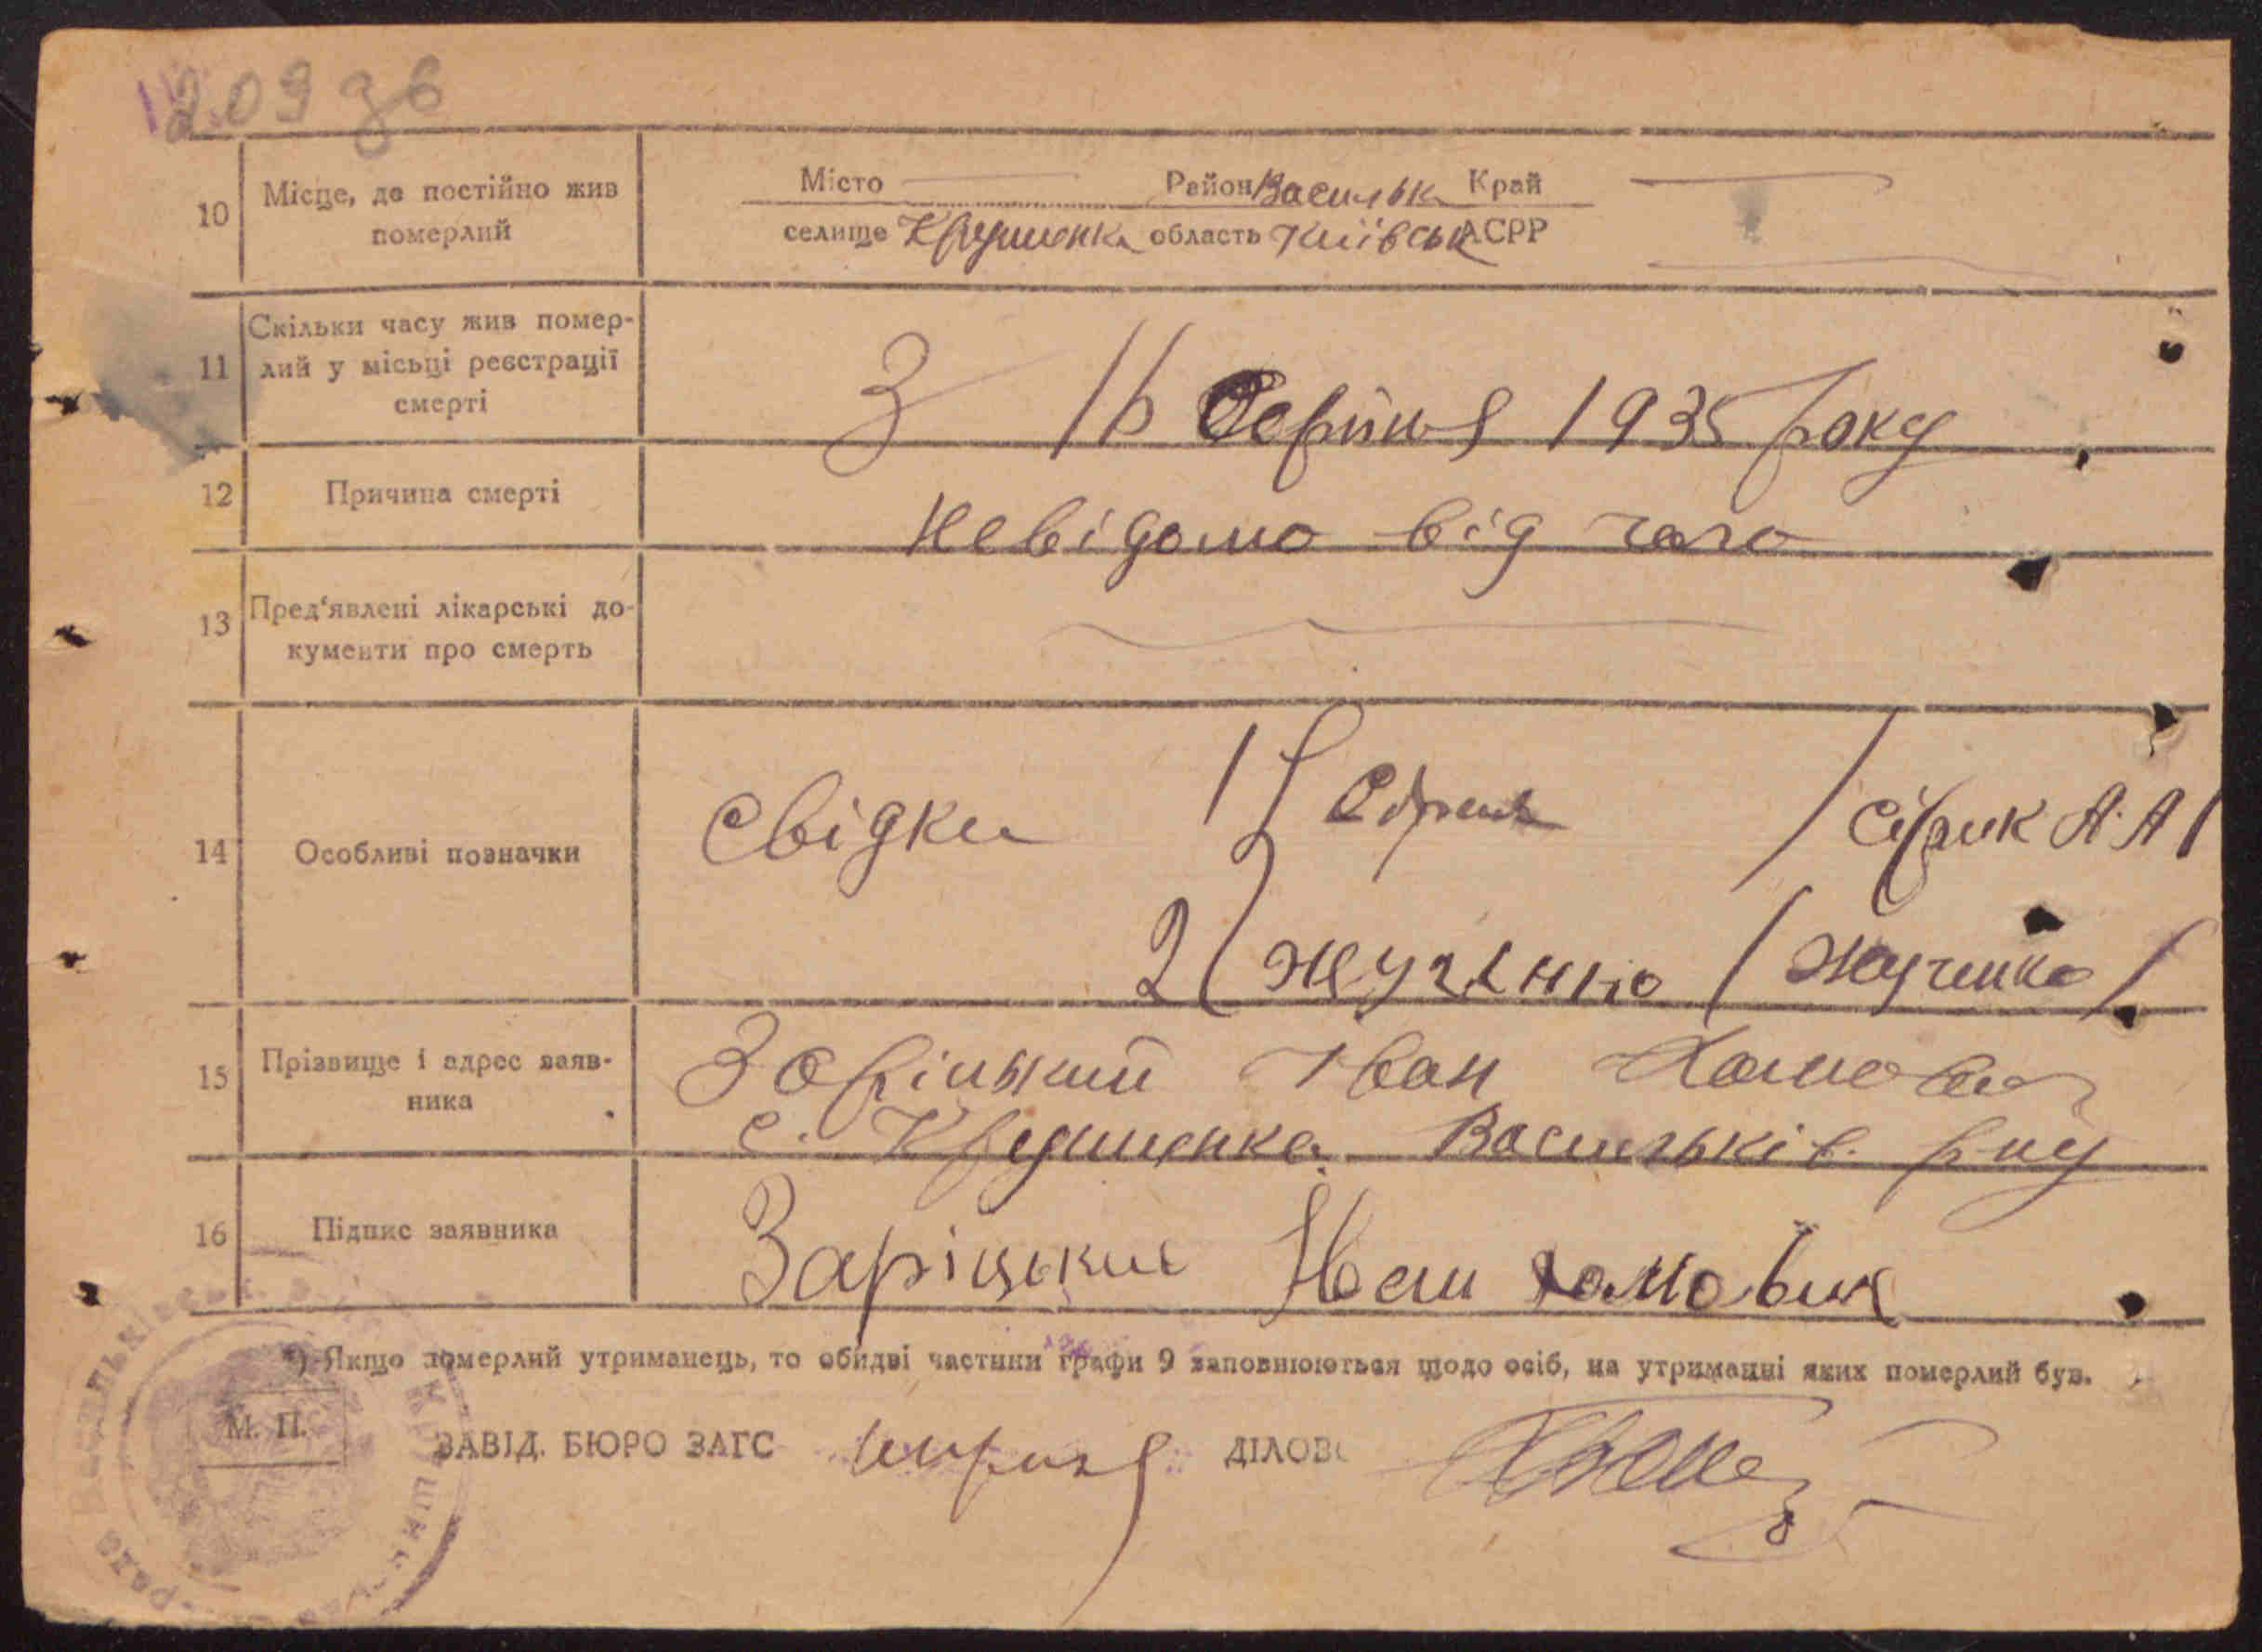 209 зв
10 Місце, де постійно жив померлий
Місто Район Васильк Край
селище Крушинка область Київськ АСРР
11 Скільки часу жив помер-
лий у місьці реєстрації
смерті
З 16 Серпня 1935 року
12 Причина смерті
Невідомо від чого
13 Пред'явлені лікарські до-
кументи про смерть
14 Особливі позначки
Свідки 1) Сірик /Сірик А. А/
2) Жученко /Жученко/
15 Прізвище і адрес заяв-
ника
Заріцький Іван Хомович
с. Крушинка Васильків. р-ну
16 Підпис заявника
Заріцький Іван Хомович
*) Якщо померлий утриманець, то обидві частини графи 9 заповнюються щодо осіб, на утриманні яких померлий був.
М. П.
ЗАВІД. БЮРО ЗАГС ДІЛОВ